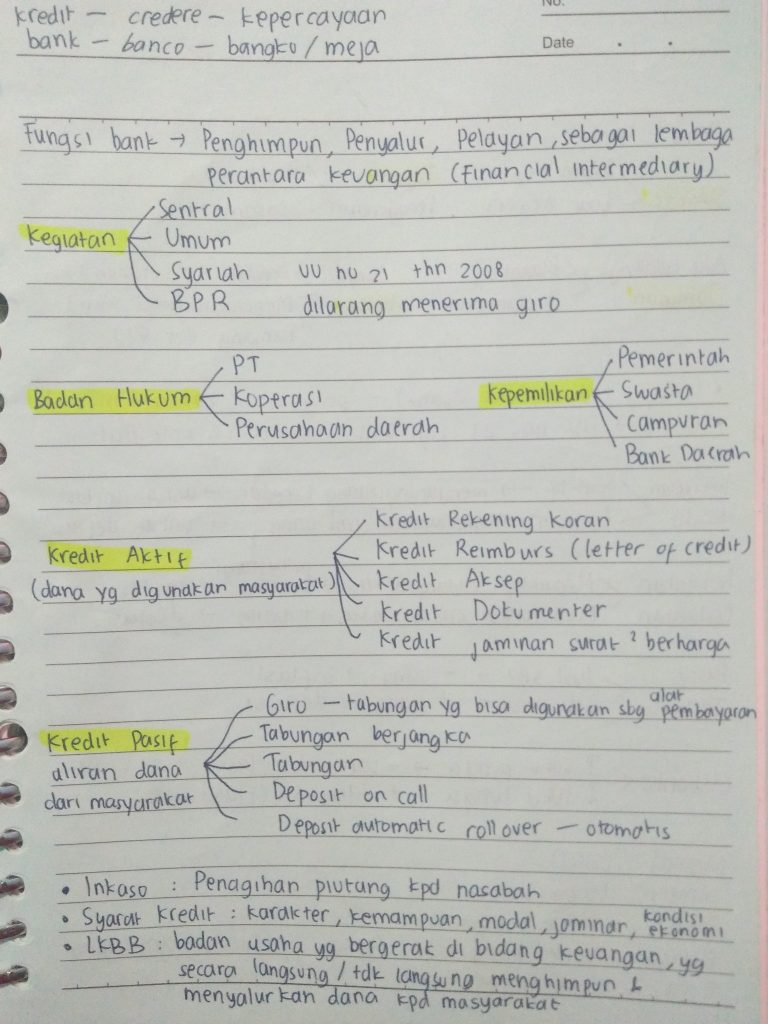 No.
Date
kredit – credere – kepercayaan
bank – banco – bangku / meja
Fungsi bank → Penghimpun, Penyalur, Pelayan, sebagai lembaga
perantara keuangan (Financial Intermediary)
Kegiatan
Sentral
Umum
Syariah UU no 21 thn 2008
BPR dilarang menerima giro
Badan Hukum
PT
Koperasi
Perusahaan daerah
Kepemilikan
Pemerintah
Swasta
Campuran
Bank Daerah
Kredit Aktif
(dana yg digunakan masyarakat)
Kredit Rekening Koran
Kredit Reimburs (letter of credit)
Kredit Aksep
Kredit Dokumenter
Kredit jaminan surat² berharga
Kredit Pasif
aliran dana
dari masyarakat
Giro – tabungan yg bisa digunakan sbg alat pembayaran
Tabungan berjangka
Tabungan
Deposit on call
Deposit automatic roll over – otomatis
• Inkaso : Penagihan piutang kpd nasabah
• Syarat kredit : karakter, kemampuan, modal, jaminan, kondisi ekonomi
• LKBB : badan usaha yg bergerak di bidang keuangan, yg
secara langsung / tdk langsung menghimpun &
menyalurkan dana kpd masyarakat